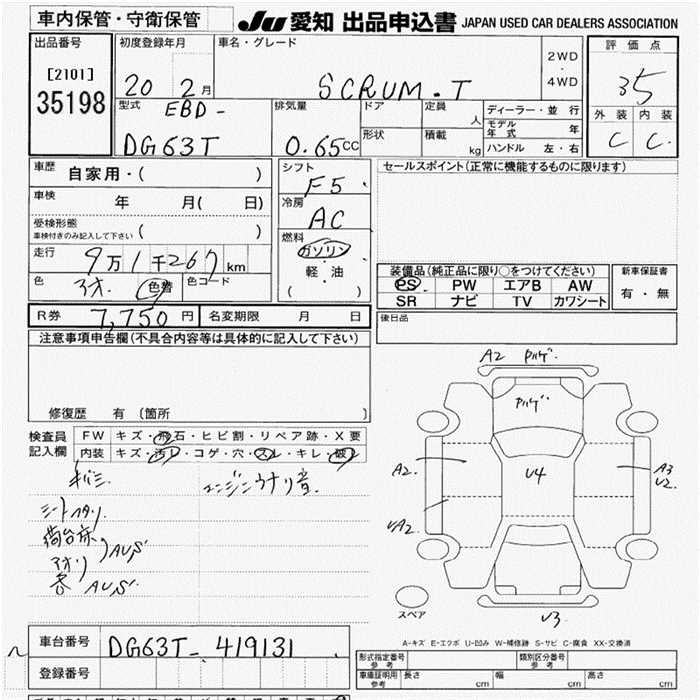 車内保管・守衛保管
JU 愛知 出品申込書 JAPAN USED CAR DEALERS ASSOCIATION
出品番号
[2101]
35198
初度登録年月
20 2月
車名・グレード
SCRUM・T
2WD
・
4WD
評価点
35
外装 内装
C C
型式
EBD-
DG63T
排気量
0.65CC
ドア
形状
定員
人
積載
kg
ディーラー・並 行
モデル年式 年
ハンドル 左・右
車歴 自家用・( )
車検 年 月( 日)
受検形態
車検付きのみ記入して下さい ( )
走行 9万1千267km
色 色替 色コード
シフト
F5
冷房
AC
燃料
ガソリン
・
軽・油
( )
セールスポイント(正常に機能するものに限ります)
装備品(純正品に限り○をつけてください)
PS PW エアB AW
SR ナビ TV カワシート
新車保証書
有・無
後日品
R券 7,750円 名変期限 月 日
注意事項申告欄(不具合内容等は具体的に記入して下さい)
修復歴 有 〔箇所
検査員
記入欄
FW キズ・飛石・ヒビ割・リペア跡・X要
内装 キズ・汚レ・コゲ・穴・スレ・キレ・破レ
キバミ
エンジンウナリ音
シートヘタリ
荷台床
アオリ
AUS
AUS
A2 アルゲ
アルゲ
A2
U4
A3
U2
UA2
U3
スペア
A-キズ E-エクボ U-凹み W-補修跡 S-サビ C-腐食 XX-交換済
車台番号 DG63T-419131
登録番号
形式指定番号
参考
類別区分番号
参考
車庫証明用
参考
長さ cm 幅 cm 高さ cm